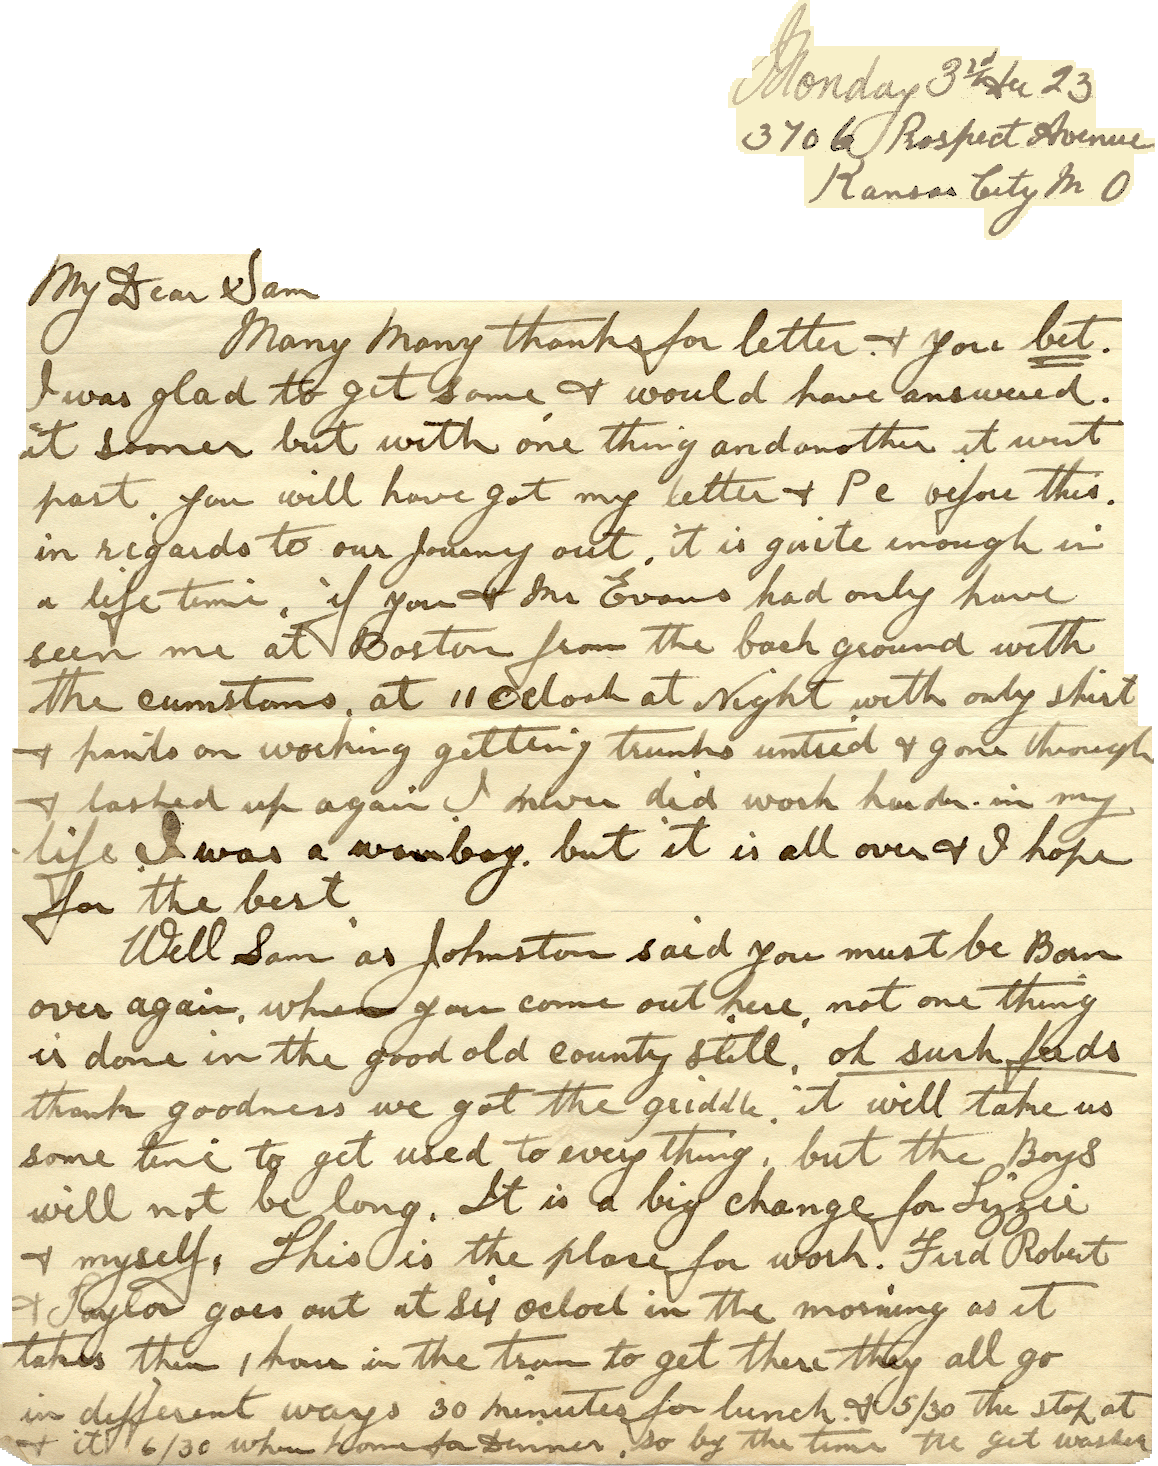 Monday 3rd Dec 23
3706 Prospect Avenue
Kansas City M O
My Dear Sam
Many Many thanks for letter. & you bet.
I was glad to get same & would have answered.
it sooner but with one thing and another it went
past. you will have got my letter & P c before this.
in regards to our journey out, it is quite enough in
a life time, if you & Mr Evans had only have
seen me at Boston from the back ground with
the cumstans, at 11 Oclock at Night with only shirt
& pants on working getting trunks untied & gone through
& lashed up again I never did work harder in my
life I was a but it is all over & I hope
for the best
Well Sam as Johnston said you must be Born
over again, when you come out here, not one thing
is done in the good old county still, oh such feeds
thank goodness we got the griddle. it will take us
some time to get used to every thing, but the Boys
will not be long. It is a big change for Lizzie
& myself, This is the place for work. Fred Robert
& Taylor goes out at Six oclock in the morning as it
takes them 1 hour in the tram to get there they all go
in different ways 30 minutes for lunch. & 5/30 the stop at
& it 6/30 when home for Dinner, so by the time the get washed